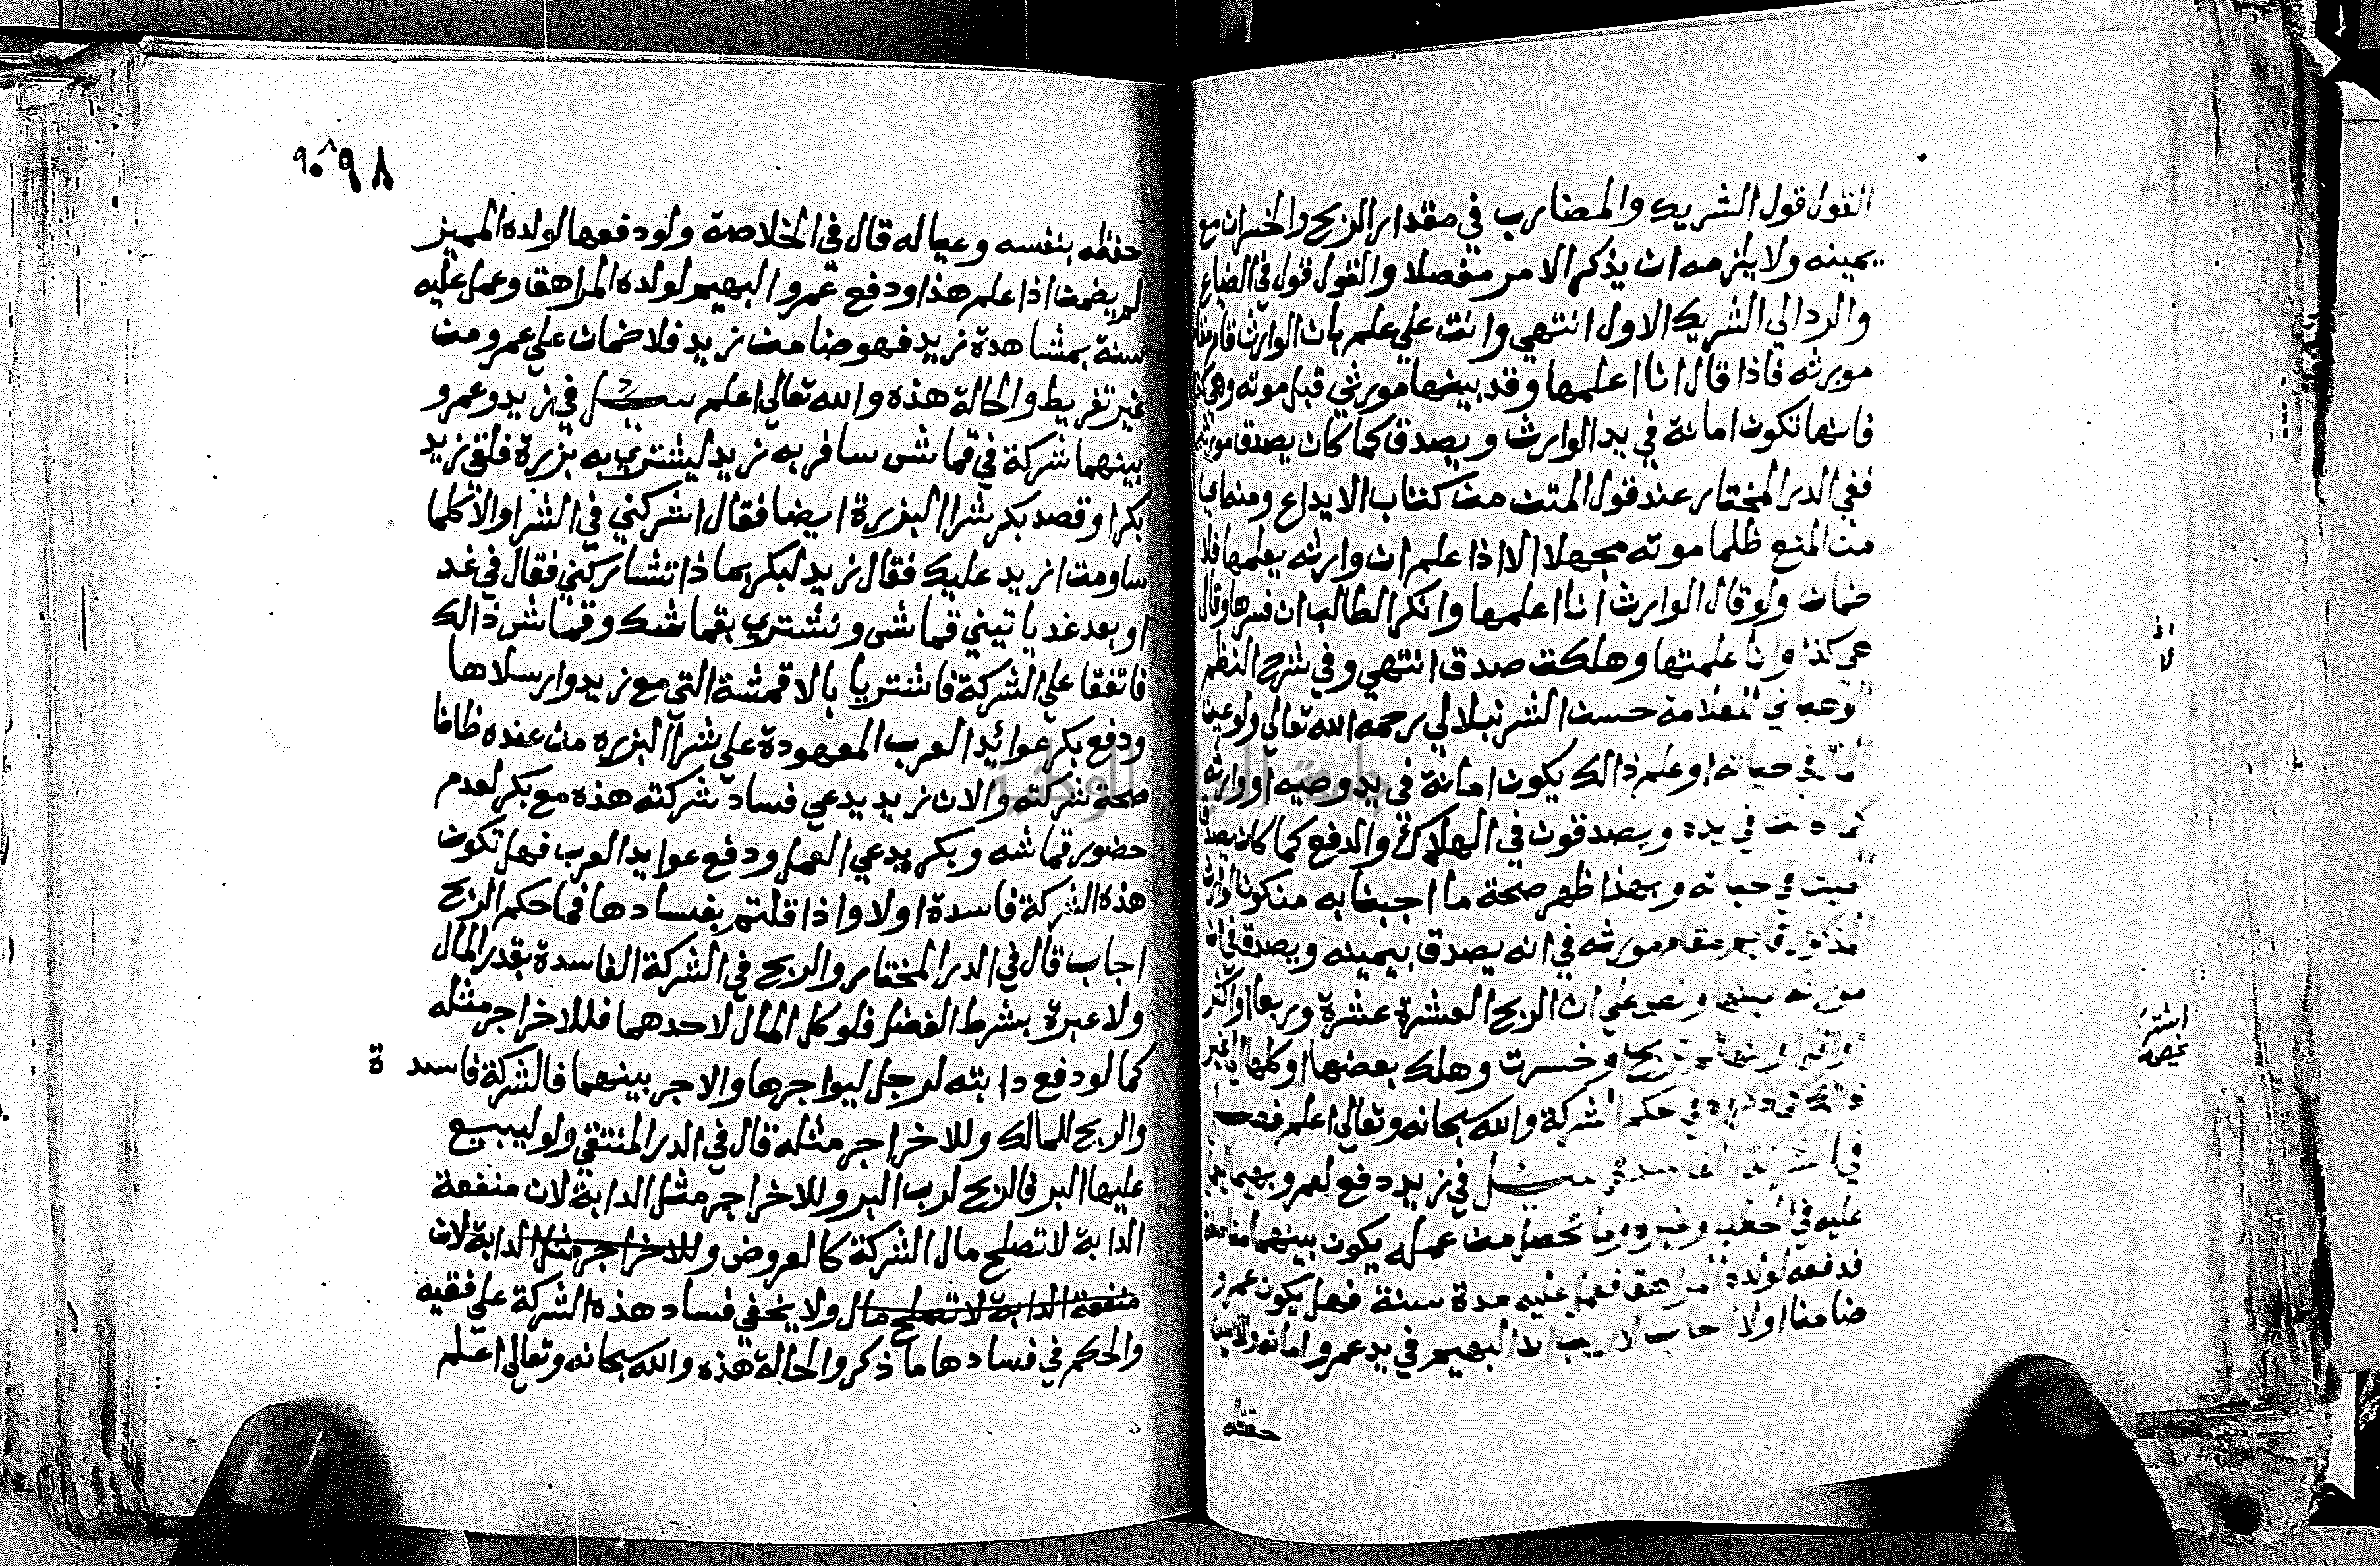 القول قول الشريك والمضارب في مقدار الربح والخسران مع
يمينه ولا يلزمه ان يذكر الامر مفصلا والقول قول في الضياع
والرد الي الشريك الاول انتهي وانت علي علم بان الوارث قام مقام
مورثه فاذا قال انا اعلمها وقد بينها مورثي قبل موته وهلكت
فانها تكون امانة في يد الوارث ويصدق كما كان يصدق مورثه
ففي الدر المختار عند قول المتن من كتاب الايداع ومنعاي
من المنع ظلما موته مجهلا الا اذا علم ان وارثه يعلمها فلا
ضمان ولو قال الوارث انا اعلمها وانكر الطالب ان فسرها وقال
هي كذا وانا علمتها وهلكت صدق انتهي وفي شرح النظم
الوهباني للعلامة حسن الشرنبلالي رحمه الله تعالي ولو عين
في حياته او علم ذالك يكون امانة في يد وصيه او وارثه
كما كانت في يده ويصدقون في الهلاك والدفع كما كان يصدق
الميت في حياته وبهذا ظهر صحة ما اجبنا به من كون الوارث
المذكور قايم مقام مورثه في انه يصدق بيمينه ويصدق في ان
مورثه بينها علي ان الربح العشرة عشرة وربعا او اكثر
وخسرت وهلك بعضها او كلها
في حكم الشركة والله سبحانه وتعالي اعلم فصل
في الشركة الفاسدة سئل في زيد دفع لعمرو بهيما
عليه في وغيره وما تحصل من عمله يكون بينهما
فدفعه لولده المراهق فعمل عليه مدة سنة فهل يكون عمرو
ضامنا اولا اجاب لا ريب ان البهيم في يد عمرو امانة
حفظه
اشتر
حفظه بنفسه وعياله قال في الخلاصة ولو دفعها لولده المميز
لم يضمن اذا علم هذا ودفع عمرو البهيم لولده المراهق وعمل عليه
سنة بمشاهدة زيد فهو ضا من زيد فلا ضمان علي عمرو من
غير تفريط والحالة هذه والله تعالي اعلم سئل في زيد وعمرو
بينهما شركة في قماش سافر به زيد ليشتري به بزرة فلقي زيد
بكرا وقصد بكر شرا البزرة ايضا فقال اشركني في الشرا والا كلما
ساومت ازيد عليك فقال زيد لبكر بماذا تشاركني فقال في غد
او بعد غد ياتيني قماشى ونشتري بقماشك وقماش ذالك
فاتفقا علي الشركة فاشتريا بالاقمشة التي مع زيد وارسلاها
ودفع بكر عوائد العرب المعهودة علي شرآ البزره من عنده ظانا
صحة شركته والان زيد يدعي فساد شركته هذه مع بكر لعدم
حضور قماشه وبكر يدعي العمل ودفع عوايد العرب فهل تكون
هذه الشركة فاسدة اولا واذا قلتم بفسادها فما حكم الربح
اجاب قال في الدر المختار والربح في الشركة الفاسدة بقدر المال
ولا عبرة بشرط الفضل فلو كل المال لاحدهما فللاخر اجر مثله
كما لو دفع دابته لرجل ليواجرها والاجر بينهما فالشركة فاسد ة
والربح للمالك وللاخر اجر مثله قال في الدر المنتقي ولو ليبيع
عليها البر فالربح لرب البر وللاخر اجر مثل الدابة لان منفعة
الدابة لا تصلح مال الشركة كالعروض وللاخر اجر مثل الدابة لان
منفعة الدابة لا تصلح مال ولا يخفي فساد هذه الشركة علي فقيه
والحكم في فسادها ما ذكر والحالة هذه والله سبحانه وتعالي اعلم